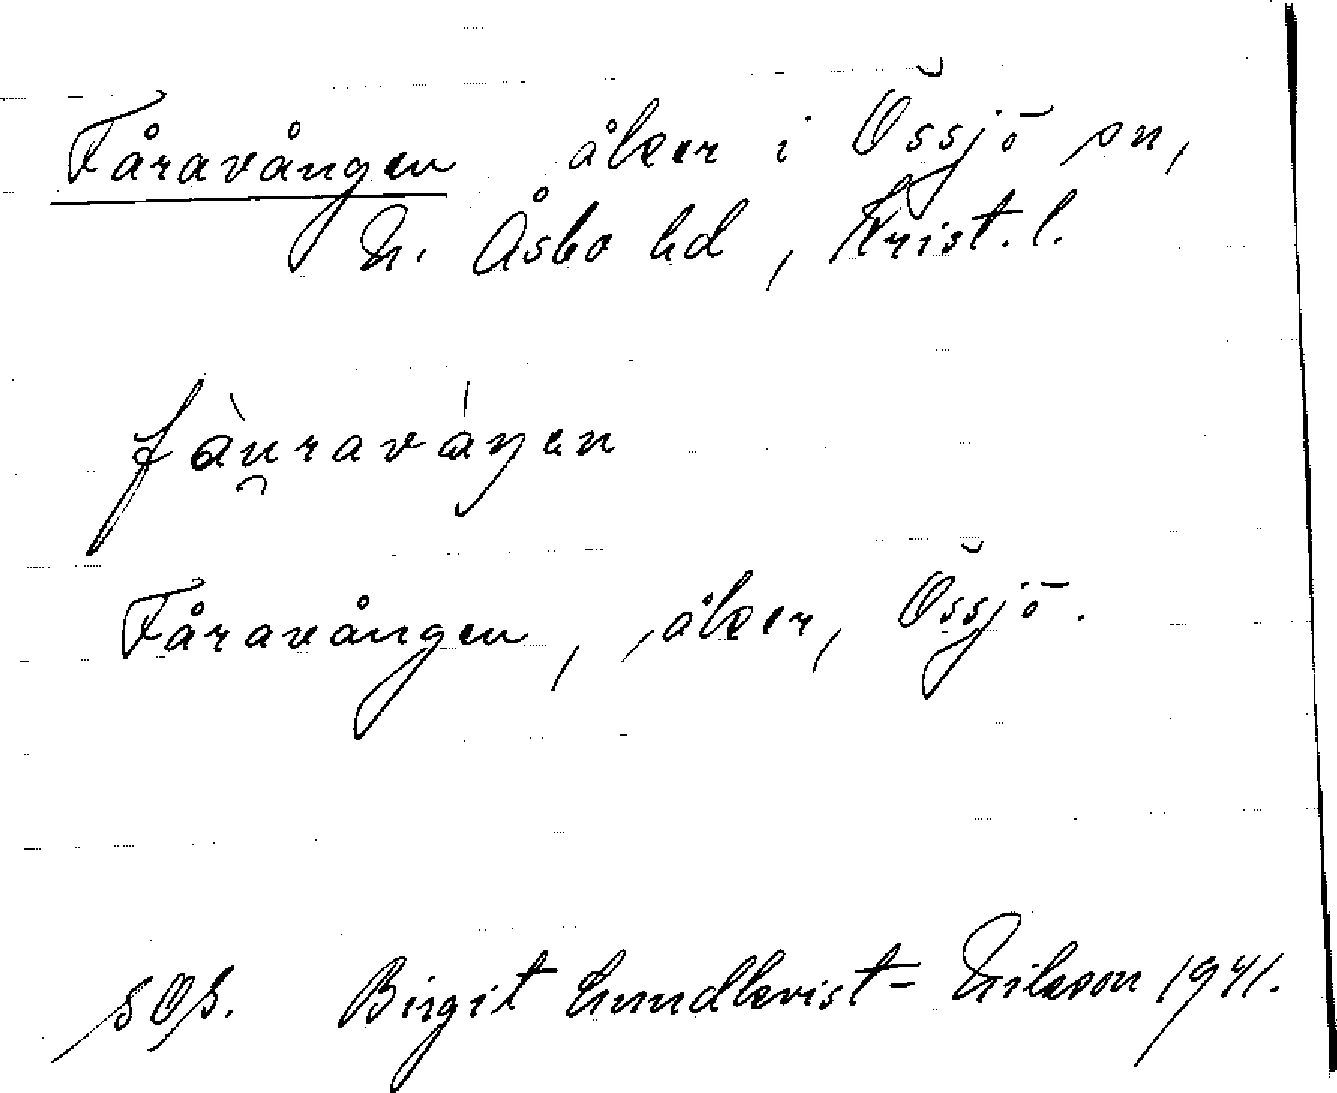 Fåravången åker i Össjö sn,
N. Åsbo hd, Krist. l.
fàu̯raváŋen
Fåravången, åker, Össjö.
SOS. Birgit Lundkvist-Nilsson 1941.